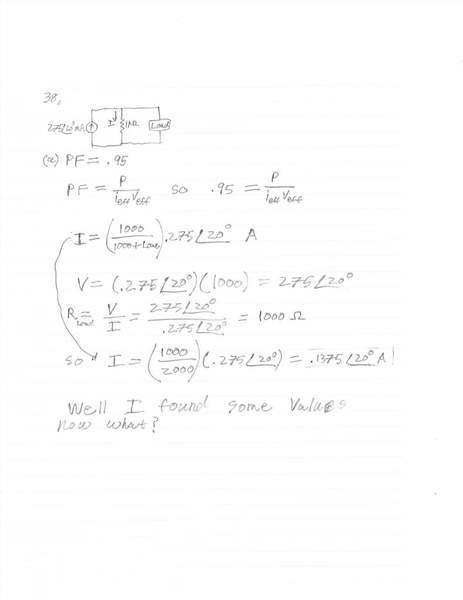 38,
275∠20° mA I 1kΩ Load
(a) PF = .95
PF = P / (Ieff Veff) so .95 = P / (Ieff Veff)
I = (1000 / (1000 + Load)) .275∠20° A
V = (.275∠20°)(1000) = 275∠20°
RLoad = V / I = 275∠20° / .275∠20° = 1000 Ω
so I = (1000 / 2000)(.275∠20°) = .1375∠20° A
Well I found some values
now what?